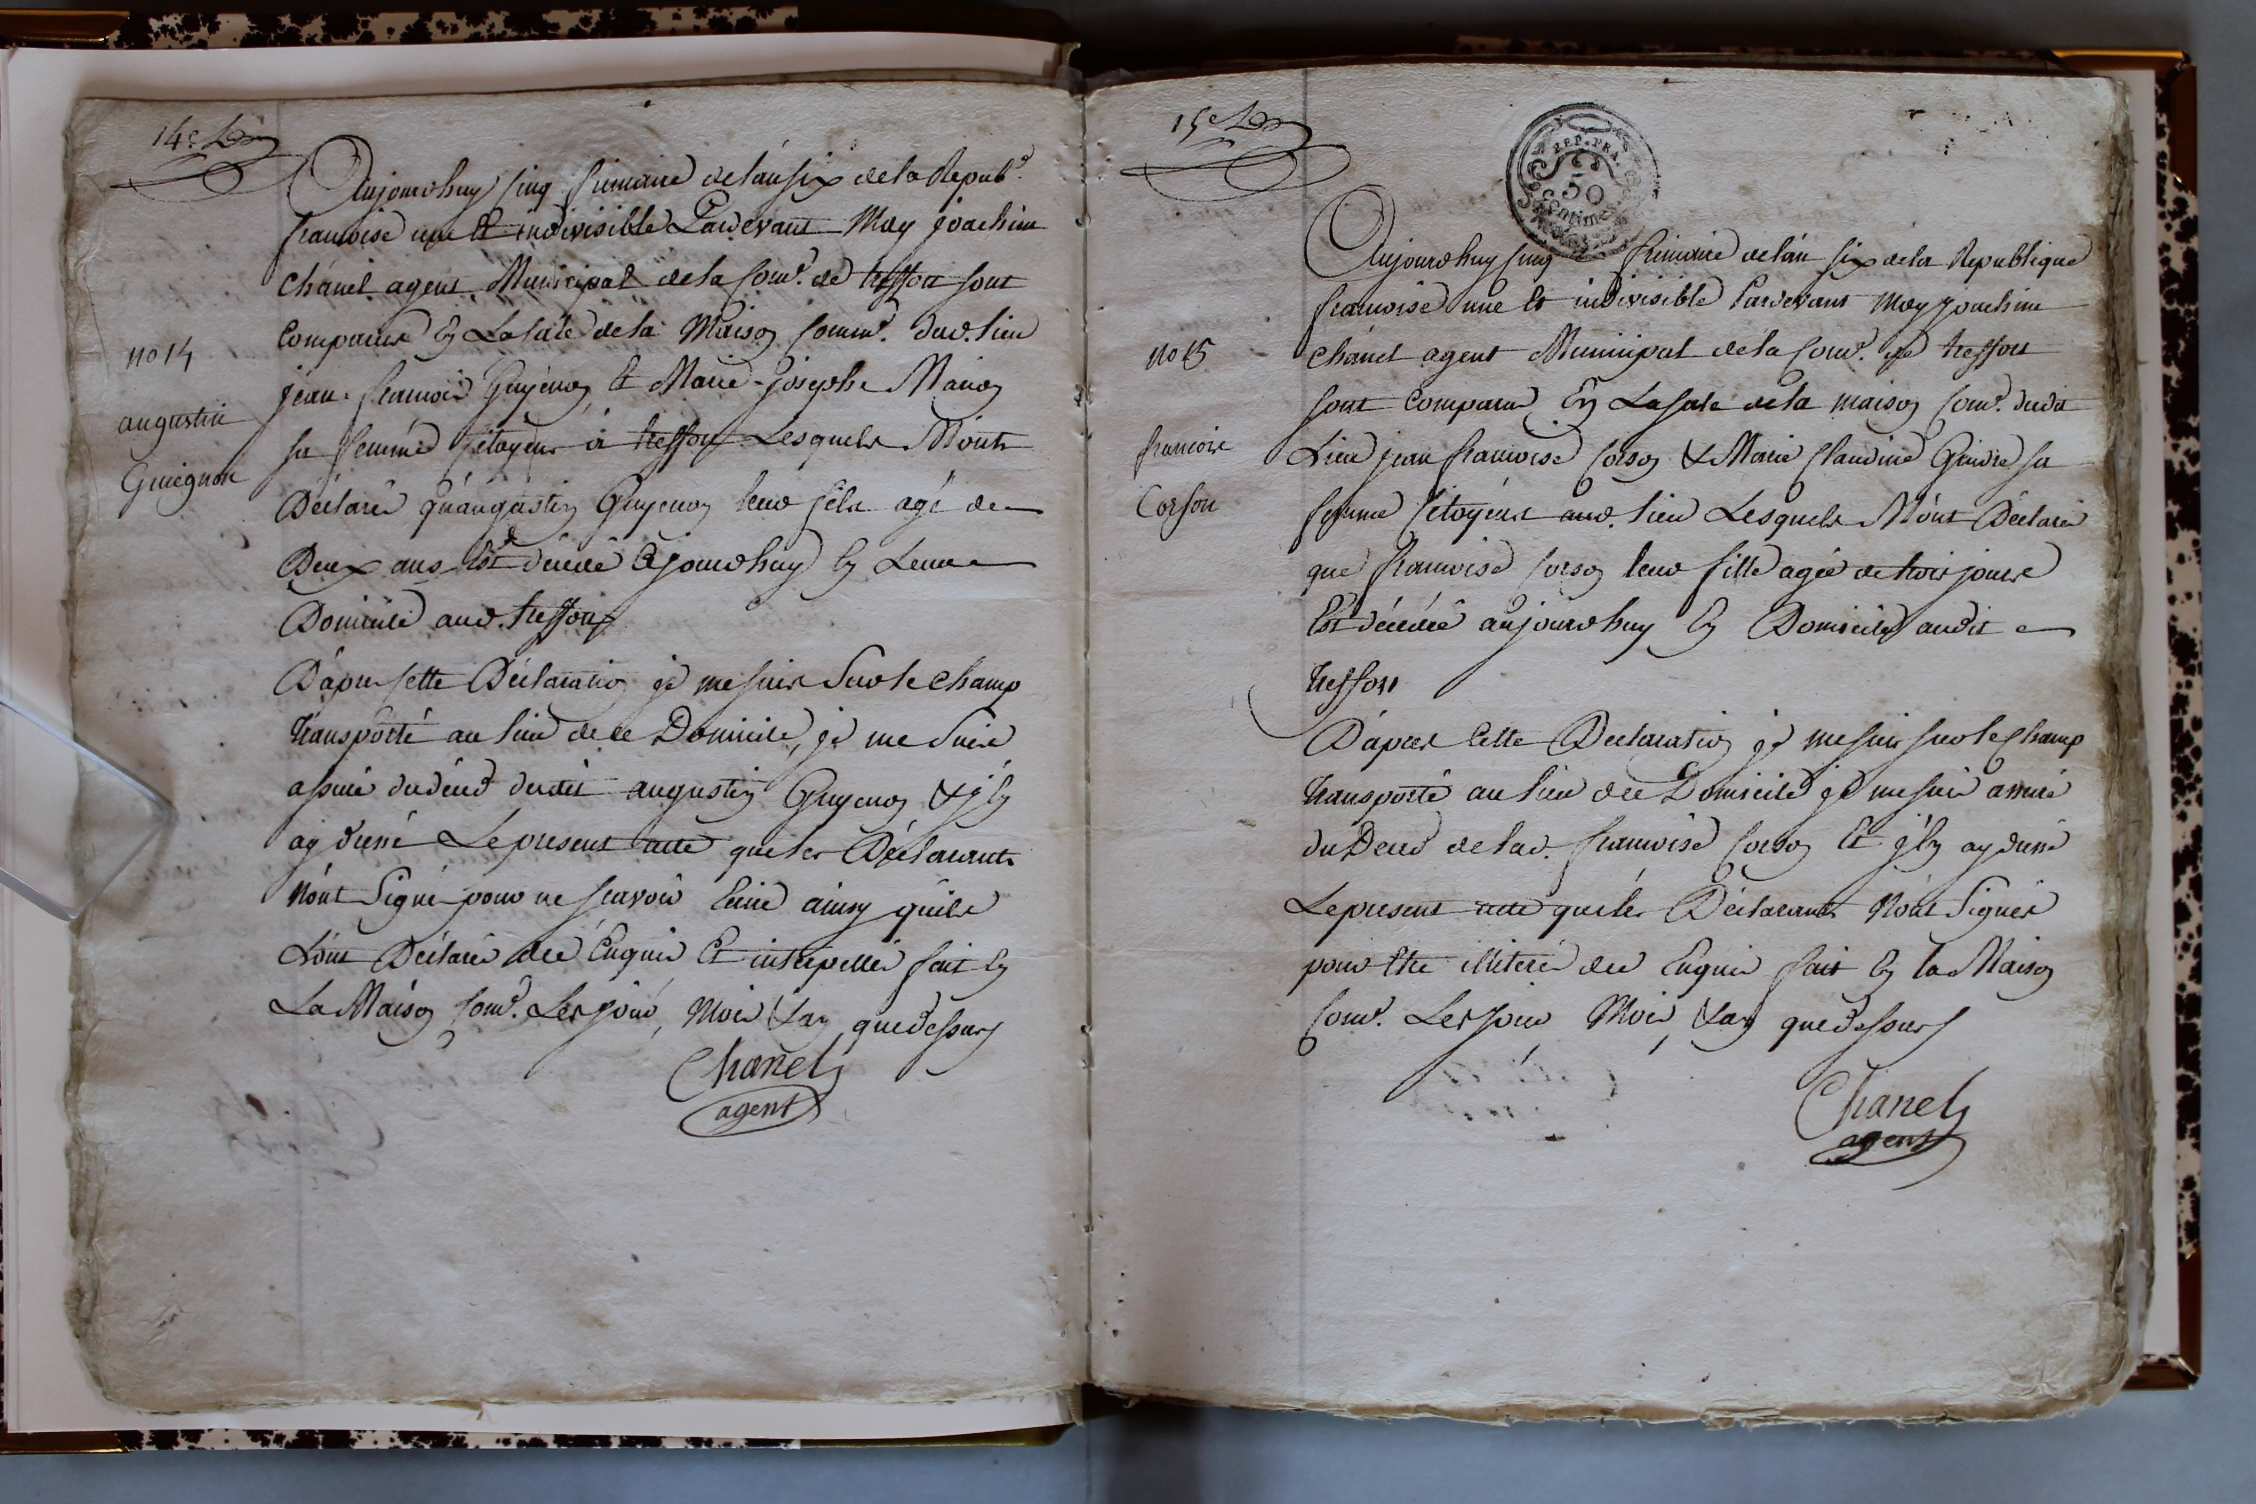 14e
Aujourdhuy cinq frimaire de lán six de la Repub.e
francoise une et indivisible Pardevant Moy joachim
chánel agent Municipal de la Com.e de treffort sont
Comparus En La sale de la Maison Comm.e dud. lieu
no 14
jean-francois Guyénon et Marie-josephe Marion
augustin
Guiegnon
sa femme Citoyens à treffort Lesquels M'ont
Déclarés qu'augustin Guyenon leur fils agé de
Deux ans Est décédé aujourdhuy En Leur
Domicile aud. treffort
D'apres cette Déclaration je me suis Sur le champ
transporté au lieu de ce Domicile, je me Suis
assuré du décès dudit augustin Guyenon & j'En
ay dréssé Le present acte que les Déclarants
N'ont Signé pour ne scavoir Ecrire ainsy qu'ils
L'ont Déclarés de ce Enquis Et interpellés fait En
La Maison Com.e Les jour, Mois & an que dessus
Chanel
agent
15e
REP. FRA.
50
Centimes
Aujourdhuy cinq frimaire de lán six de la Republique
francoise une Et indivisible Pardevant Moy joachim
no 15
chánel agent Municipal de la Com.e de treffort
sont Comparus En La sale de la maison Com.e dudit
francoise
Corson
Lieu jean francoise Corson & Marie Claudine Guidre sa
femme Citoyens aud. lieu Lesquels M'ont Déclarés
que francoise Corson leur fille agée de trois jours
Est décédée aujourdhuy En Domicile audit
treffort
D'apres Cette Declaration je me suis sur le Champ
transporté au lieu de ce Domicile je me suis assuré
du Deces de lad. francoise Corson Et j'En ay dressé
Le present acte que les Déclarants N'ont Signés
pour Etre illiterés de ce Enquis fait En la Maison
Com.e Les Jour, Mois, & an que dessus
Chanel
agent